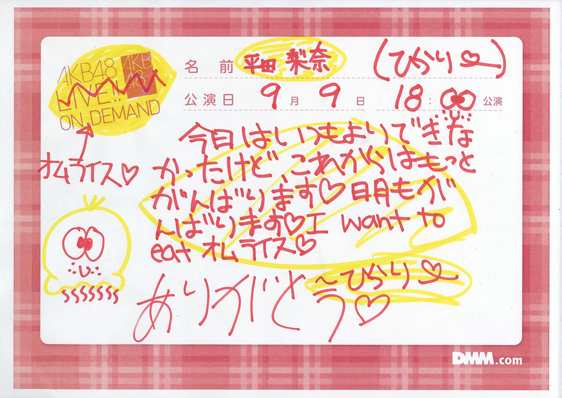 AKB48 AKB
LIVE!!
ON DEMAND
名前 平田 梨奈 (ひらり♡)
公演日 9月 9日 18:00 公演
オムライス♡
今日はいつもよりできな
かったけど、これからはもっと
がんばります♡明日もが
んばります♡I want to
eat オムライス♡
〜ひらり♡
ありがとう♡
SSSSSSS
DMM.com